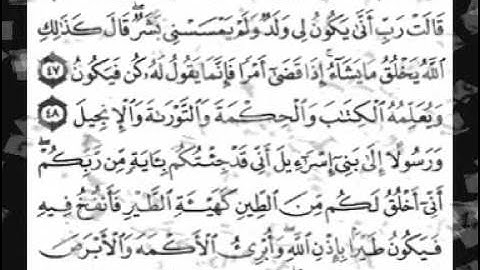 قَالَتْ رَبِّ أَنَّىٰ يَكُونُ لِى وَلَدٌ وَلَمْ يَمْسَسْنِى بَشَرٌ ۖ قَالَ كَذَٰلِكِ
ٱللَّهُ يَخْلُقُ مَا يَشَآءُ ۚ إِذَا قَضَىٰٓ أَمْرًا فَإِنَّمَا يَقُولُ لَهُۥ كُن فَيَكُونُ ٤٧
وَيُعَلِّمُهُ ٱلْكِتَٰبَ وَٱلْحِكْمَةَ وَٱلتَّوْرَىٰةَ وَٱلْإِنجِيلَ ٤٨
وَرَسُولًا إِلَىٰ بَنِىٓ إِسْرَٰٓءِيلَ أَنِّى قَدْ جِئْتُكُم بِـَٔايَةٍ مِّن رَّبِّكُمْ ۖ
أَنِّىٓ أَخْلُقُ لَكُم مِّنَ ٱلطِّينِ كَهَيْـَٔةِ ٱلطَّيْرِ فَأَنفُخُ فِيهِ
فَيَكُونُ طَيْرًۢا بِإِذْنِ ٱللَّهِ ۖ وَأُبْرِئُ ٱلْأَكْمَهَ وَٱلْأَبْرَصَ